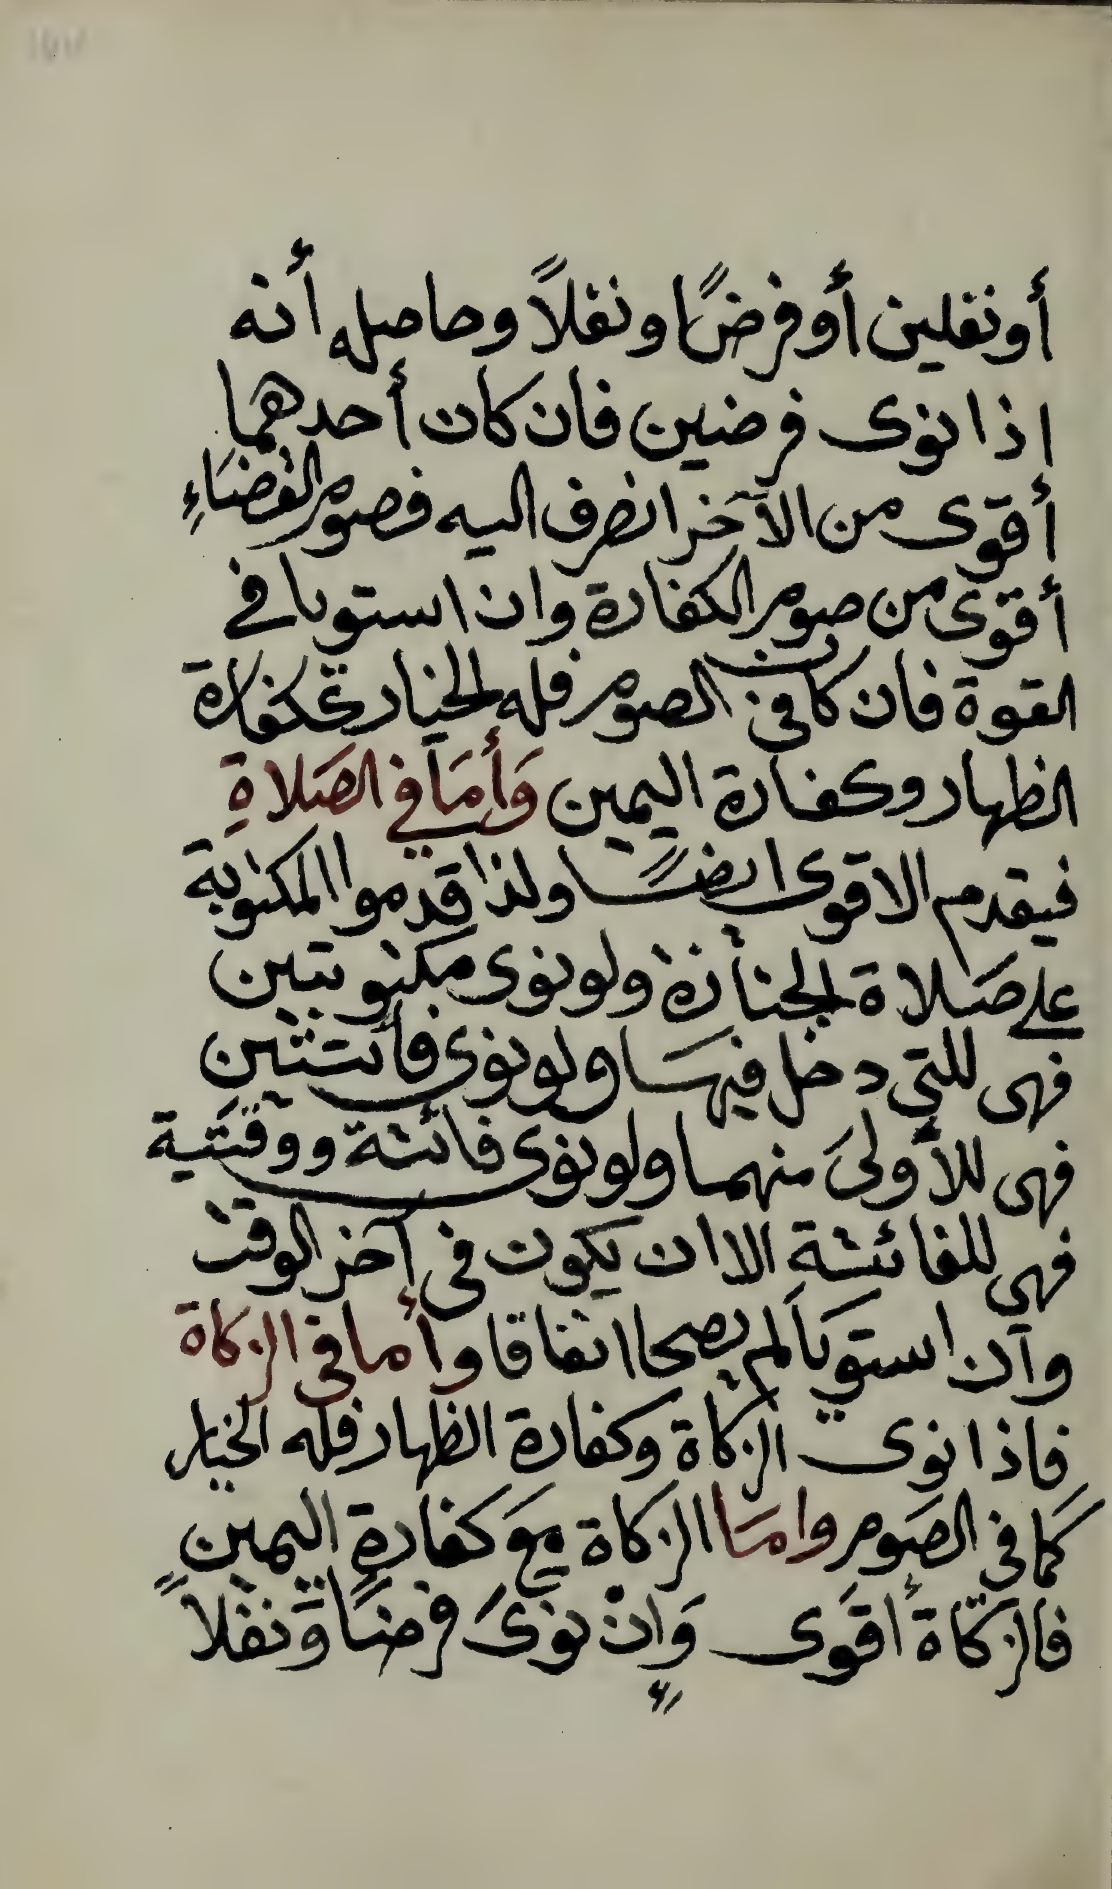 أو نفلين أو فرضًا ونفلاً وحاصله أنه
اذا نوى فرضين فان كان أحدهما
أقوى من الآخر انصرف اليه فصوم القضاءِ
أقوى من صوم الكفارة وان استويا في
القوة فان كان في الصوم فله الخيار ككفارة
الظهار وكفارة اليمين وَأمَا في الصَلاةِ
فيقدم الاقوى ايضًا ولذا قدموا المكتوبة
على صَلاة الجنازة ولو نوى مكتوبتين
فهى للتي دخل فيهَا ولو نوى فائتتين
فهى للأولىَ منهما ولو نوى فائتة ووقتية
فهي للفائتة الا ان يكون في آخر الوقت
وان استويَا لم يصحا اتفاقا وأما في الزكاة
فاذا نوى الزكاة وكفارة الظهار فله الخيار
كمَا في الصَوم وامَا الزكاة مع كفارة اليمين
فالزكاة أقوَى وَإن نوىَ فرضًا وَنفلاً